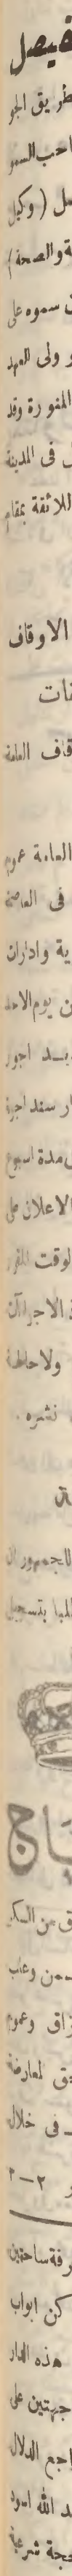 فيصل
طريق الجو
صاحب السمو
ـل (وكيل
ـة والصحة)
سموه على
ولى العهد
المنورة وقد
فى المدينة
اللائقة بمقام
الاوقاف
ـنات
ـقاف العامة
العامة عموم
فى العاصمة
ـية وادارات
ـن يوم الاحد
بـد اجور
ـار سند اجرة
مدة اسبوع
الاعلان على
لوقت المقرر
الاجراآت
ولاحاطة
نشره.
للجمهور ان
ـلبا بتسجيل
ـاج
ـق من السكر
ـمن وعلب
ـزاق وعموم
ـق لمعارضة
ـ فى خلال
٢ – ٢
ـرفة ساحتين
ـكن ابواب
جهتين على
هذه الدار
ـراجع الدلال
ـد الله اسود
ـجة شرعية